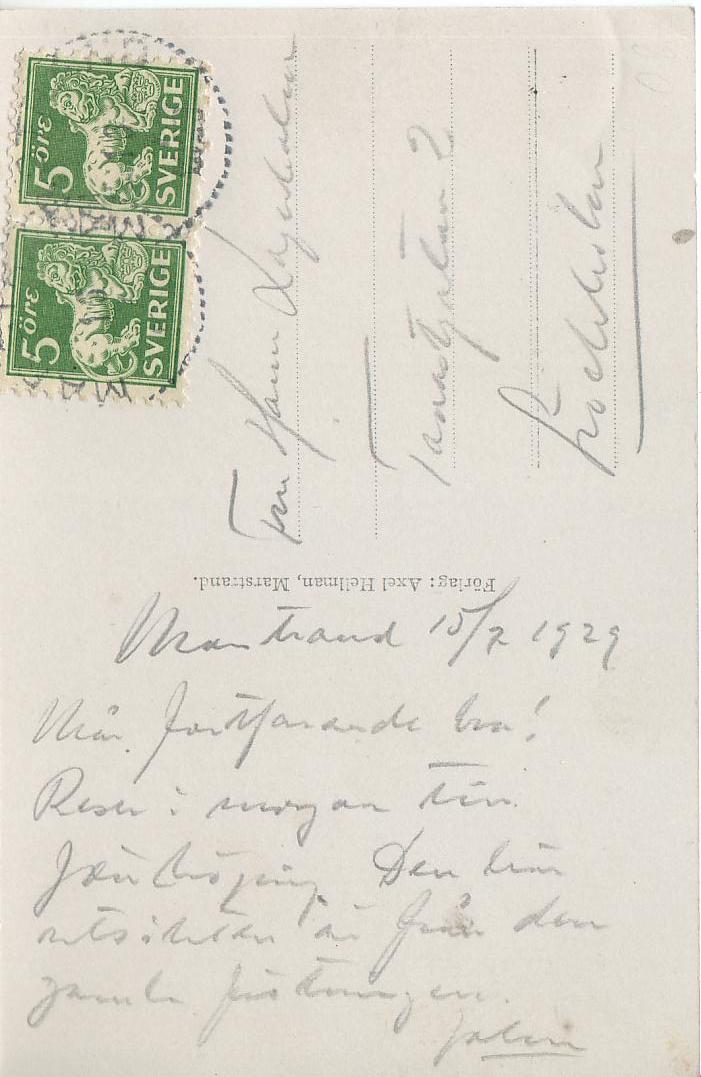 5 öre
SVERIGE
5 öre
SVERIGE
Fru Hanna Lagerholm
2
Stockholm
Förlag: Axel Hellman, Marstrand.
Marstrand 15/7 1929
Mår fortfarande bra!
Reser i morgon till
Jönköping. Den här
utsikten är från den
gamla fästningen.